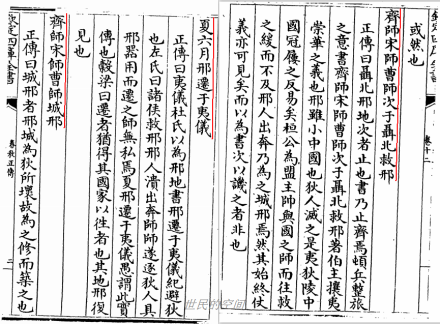 或然也
齊師宋師曹師次于聶北救邢
正傳曰聶北邢地次者止也書乃止齊焉頓兵整旅
之意書齊師宋師曹師次于聶北救邢著伯主攘夷
崇華之義也邢雖小中國也狄人滅之是夷狄陵中
國冠屨之反易矣桓公為盟主帥與國之師而往救
之緩而不及邢人出奔乃為之城邢焉然其始終仗
義亦可見矣而以為書次以譏之者非也
夏六月邢遷于夷儀
正傳曰夷儀杜氏以為邢地書邢遷于夷儀紀避狄
也左氏曰諸侯救邢邢人潰出奔師師遂逐狄人具
邢器用而遷之師無私焉夏邢遷于夷儀愚謂此實
傳也穀梁曰遷者猶得其國家以往者也其地邢復
見也
齊師宋師曹師城邢
正傳曰城邢者邢城為狄所壞故為之修而築之也
春秋正傳
世民的空间